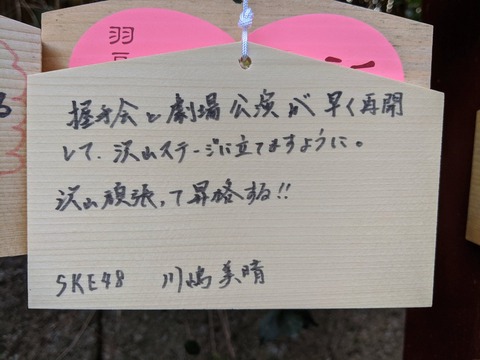 羽
握手会と劇場公演が早く再開
して、沢山ステージに立てますように。
沢山頑張って昇格する!!
SKE48 川嶋美晴